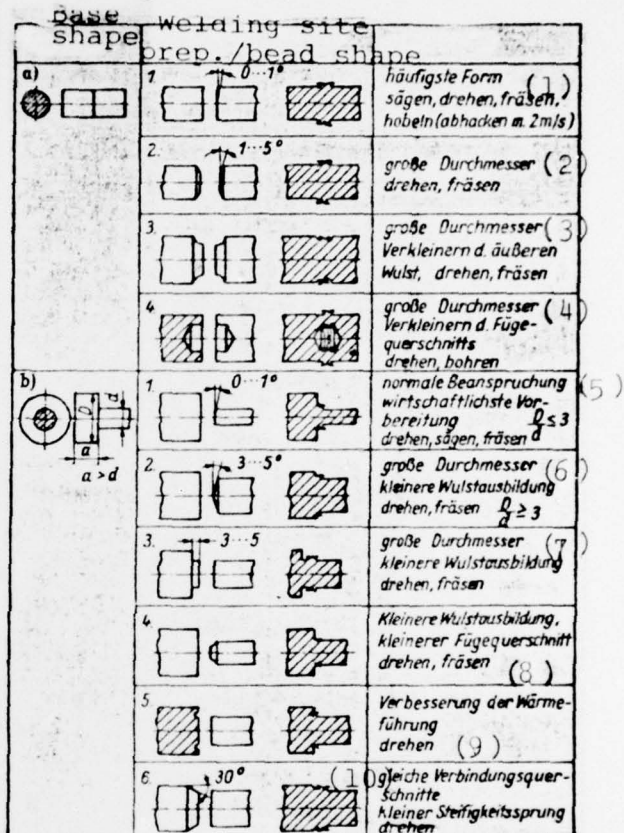 Base
shape
Welding site
prep./bead shape
a)
1.
0...1°
häufigste Form (1)
sägen, drehen, fräsen,
hobeln (abhacken m. 2m/s)
2.
1...5°
große Durchmesser (2)
drehen, fräsen
3.
große Durchmesser (3)
Verkleinern d. äußeren
Wulst, drehen, fräsen
4.
große Durchmesser (4)
Verkleinern d. Füge-
querschnitts
drehen, bohren
b)
D
d
a
a > d
1.
0...1°
normale Beanspruchung (5)
wirtschaftlichste Vor-
bereitung D/d ≤ 3
drehen, sägen, fräsen
2.
3...5°
große Durchmesser (6)
kleinere Wulstausbildung
drehen, fräsen D/d ≥ 3
3.
3...5
große Durchmesser (7)
kleinere Wulstausbildung
drehen, fräsen
4.
Kleinere Wulstausbildung,
kleinerer Fügequerschnitt
drehen, fräsen (8)
5.
Verbesserung der Wärme-
führung
drehen (9)
6.
30°
(10) gleiche Verbindungsquer-
schnitte
kleiner Steifigkeitssprung
drehen